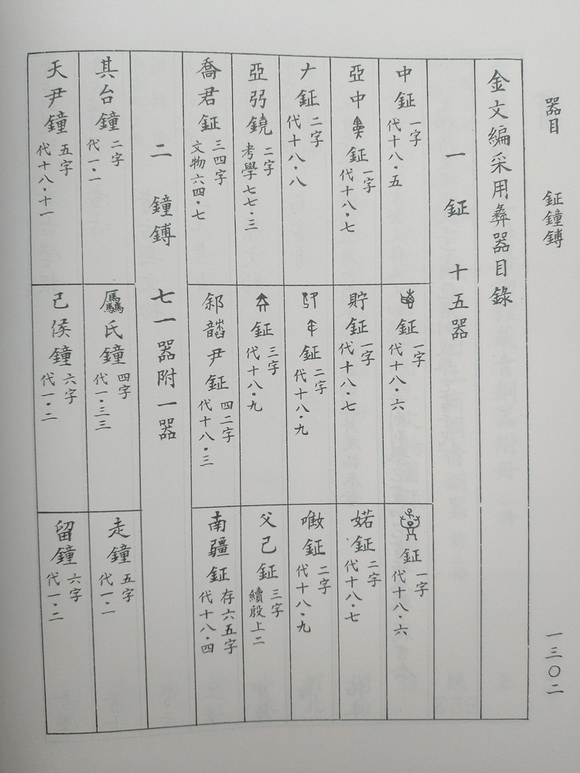 器目 鉦鐘鎛 一三〇二
金文編采用彝器目錄
一 鉦 十五器
中鉦 一字 代十八·五
鉦 一字 代十八·六
鉦 一字 代十八·六
亞中 鉦 一字 代十八·七
貯鉦 一字 代十八·七
婼鉦 二字 代十八·七
鉦 二字 代十八·八
鉦 二字 代十八·九
鉦 二字 代十八·九
亞弜鐃 二字 考學七七·三
鉦 三字 代十八·九
父己鉦 三字 續殷上二
喬君鉦 三四字 文物六四·七
尹鉦 四二字 代十八·三
南疆鉦 存六五字 代十八·四
二 鐘鎛 七一器附一器
其台鐘 二字 代一·一
氏鐘 四字 代一·三三
走鐘 五字 代一·二
天尹鐘 五字 代十八·十一
己侯鐘 六字 代一·二
留鐘 六字 代一·二